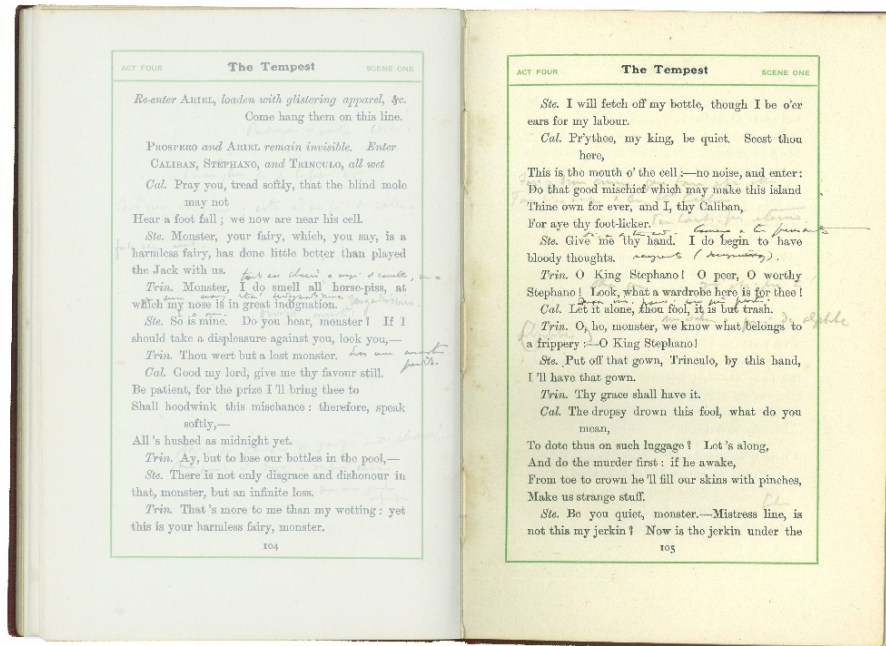 ACT FOUR
The Tempest
SCENE ONE
Re-enter ARIEL, loaden with glistering apparel, &c.
Come hang them on this line.
PROSPERO and ARIEL remain invisible. Enter
CALIBAN, STEPHANO, and TRINCULO, all wet
Cal. Pray you, tread softly, that the blind mole
may not
Hear a foot fall; we now are near his cell.
Ste. Monster, your fairy, which, you say, is a
harmless fairy, has done little better than played
the Jack with us.
Trin. Monster, I do smell all horse-piss, at
which my nose is in great indignation.
Ste. So is mine. Do you hear, monster? If I
should take a displeasure against you, look you,—
Trin. Thou wert but a lost monster.
Cal. Good my lord, give me thy favour still.
Be patient, for the prize I'll bring thee to
Shall hoodwink this mischance: therefore, speak
softly,—
All's hushed as midnight yet.
Trin. Ay, but to lose our bottles in the pool,—
Ste. There is not only disgrace and dishonour in
that, monster, but an infinite loss.
Trin. That's more to me than my wetting: yet
this is your harmless fairy, monster.
104
ACT FOUR
The Tempest
SCENE ONE
Ste. I will fetch off my bottle, though I be o'er
ears for my labour.
Cal. Pr'ythee, my king, be quiet. Seest thou
here,
This is the mouth o' the cell:—no noise, and enter:
Do that good mischief which may make this island
Thine own for ever, and I, thy Caliban,
For aye thy foot-licker.
Ste. Give me thy hand. I do begin to have
bloody thoughts.
Trin. O King Stephano! O peer, O worthy
Stephano! Look, what a wardrobe here is for thee!
Cal. Let it alone, thou fool, it is but trash.
Trin. O, ho, monster, we know what belongs to
a frippery:—O King Stephano!
Ste. Put off that gown, Trinculo, by this hand,
I'll have that gown.
Trin. Thy grace shall have it.
Cal. The dropsy drown this fool, what do you
mean,
To dote thus on such luggage? Let's along,
And do the murder first: if he awake,
From toe to crown he'll fill our skins with pinches,
Make us strange stuff.
Ste. Be you quiet, monster.—Mistress line, is
not this my jerkin? Now is the jerkin under the
105